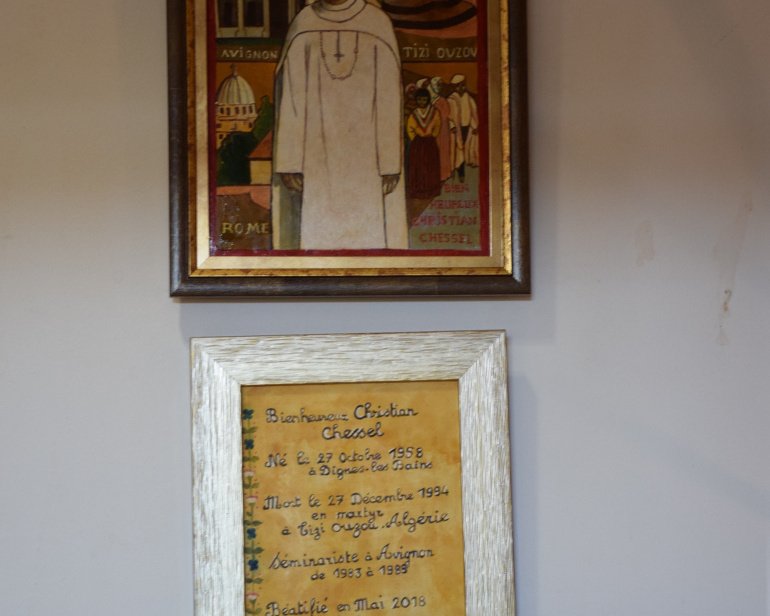 AVIGNON
TIZI OUZOU
ROME
BIEN
HEUREUX
CHRISTIAN
CHESSEL
Bienheureux Christian
Chessel
Né le 27 Octobre 1958
à Dignes-les Bains
Mort le 27 Décembre 1994
en martyr
à Tizi Ouzou. Algérie
Séminariste à Avignon
de 1983 à 1985
Béatifié en Mai 2018